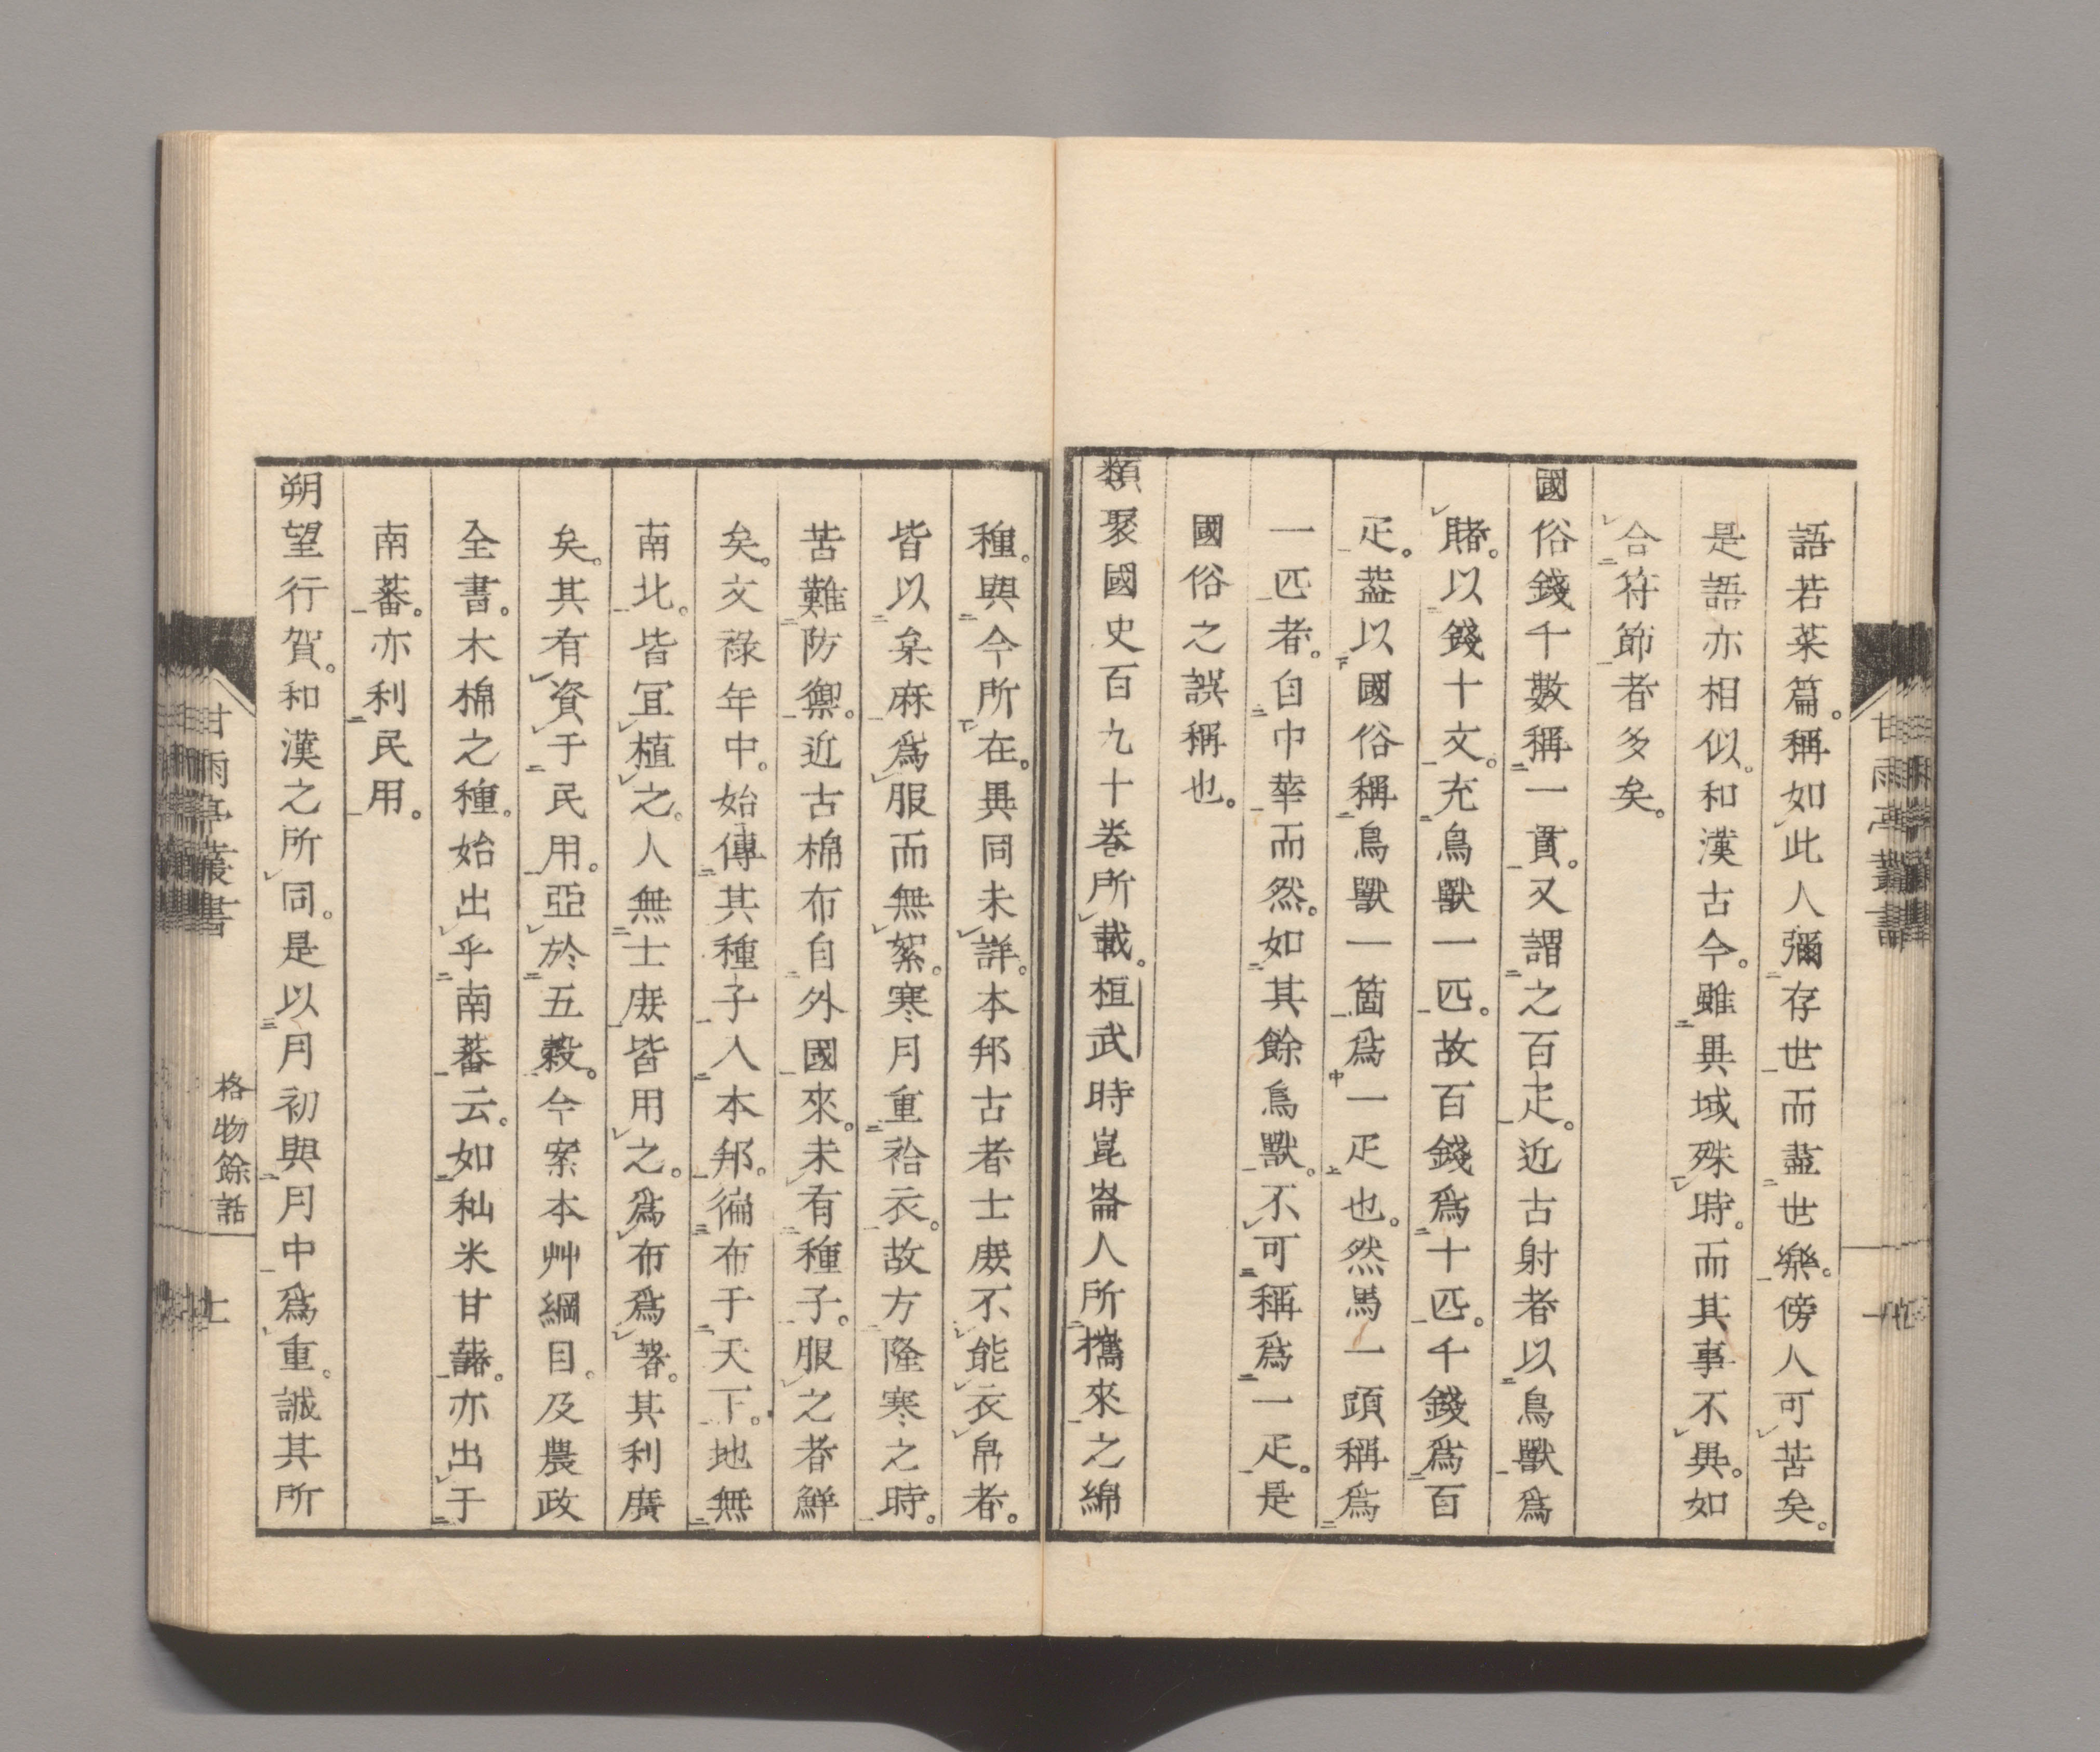 語若菜篇。稱如此人彌存世而盡世樂。傍人可苦矣。
是語亦相似。和漢古今。雖異域殊時。而其事不異。如
合符節者多矣。
國俗錢千數稱一貫。又謂之百疋。近古射者以鳥獸爲
賭。以錢十文。充鳥獸一匹。故百錢爲十匹。千錢爲百
疋。蓋以國俗稱鳥獸一箇爲一疋也。然馬一頭稱爲
一匹者。自中華而然。如其餘鳥獸。不可稱爲一疋。是
國俗之誤稱也。
類聚國史百九十卷所載。桓武時崑崙人所攜來之綿
種。與今所在。異同未詳。本邦古者士庶不能衣帛者。
皆以枲麻爲服而無絮。寒月重袷衣。故方隆寒之時。
苦難防禦。近古棉布自外國來。未有種子。服之者鮮
矣。文祿年中。始傳其種子入本邦。徧布于天下。地無
南北。皆宜植之。人無士庶皆用之。爲布爲著。其利廣
矣。其有資于民用。亞於五穀。今案本艸綱目。及農政
全書。木棉之種。始出乎南蕃云。如秈米甘藷。亦出于
南蕃。亦利民用。
朔望行賀。和漢之所同。是以月初與月中爲重。誠其所
甘雨亭叢書
格物餘話
七